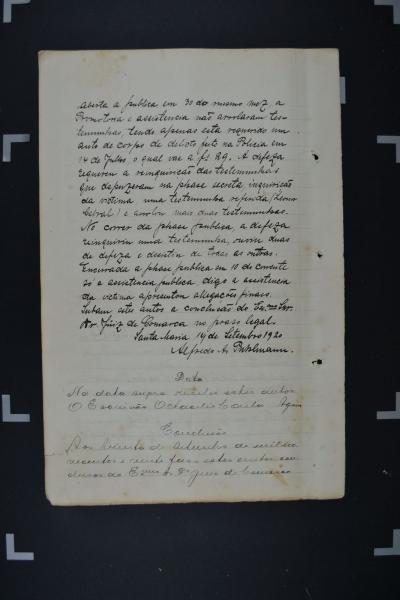 aberta a publica em 30 do mesmo mez, a
Promotoria e assistencia não arrolaram tes-
temunhas, tendo apenas esta requerido um
auto de corpo de delicto feito na Policia em
14 de Julho, o qual vae a fs 29. A defeza
requereu a reinquirição das testemunhas
que depuzeram na phase secreta inquirição
da victima uma testemunha referida
e arrolou mais duas testemunhas.
No correr da phase publica, a defeza
reinquiriu uma testemunha, ouviu duas
de defeza e desistiu de todas as outras.
Encerrada a phase publica em 10 de corrente
só a assistencia publica, digo a assistencia
da victima apresentou allegações finaes.
Subam estes autos a conclusão do Exmo Snr.
Dr Juiz de Comarca no praso legal.
Santa Maria 14 de Setembro 1920
Alfredo A.
Data
Na data supra recebi estes autos
O Escrivão Octacilio
Conclusão
Aos de Setembro de mil no-
vecentos e vinte faço estes autos con-
clusos ao Exmo Dr Juiz de Comarca